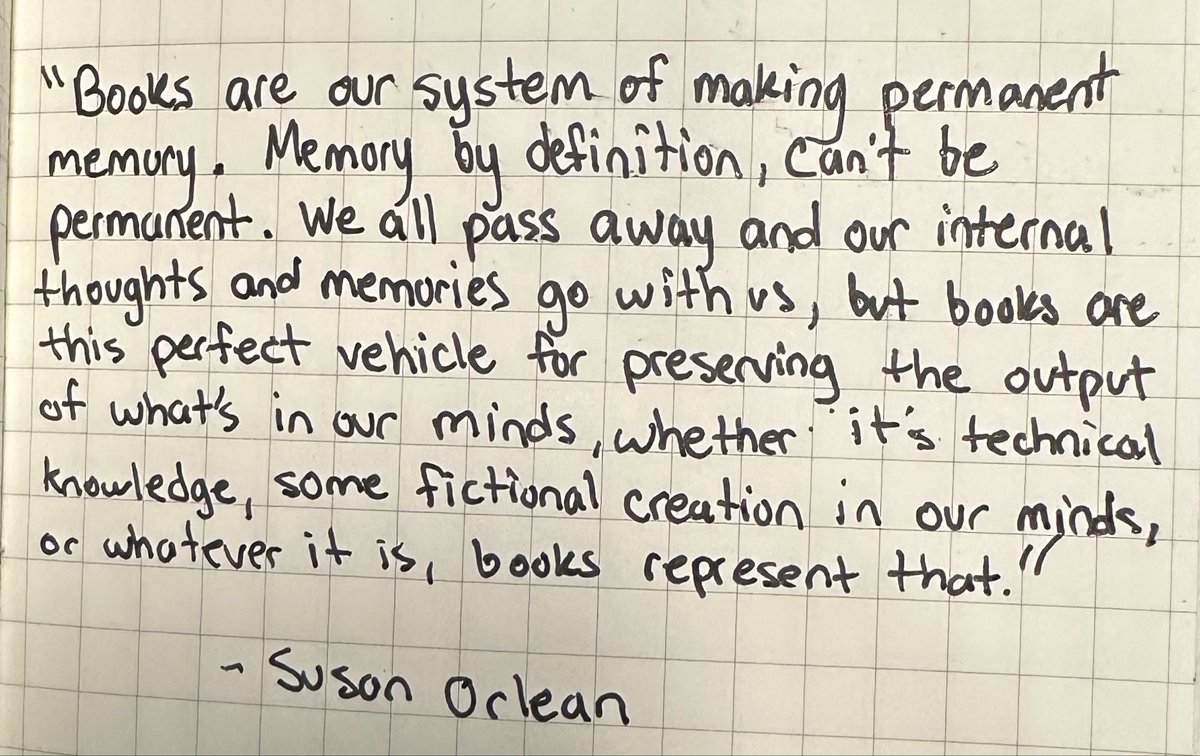 "Books are our system of making permanent
memory. Memory by definition, can't be
permanent. We all pass away and our internal
thoughts and memories go with us, but books are
this perfect vehicle for preserving the output
of what's in our minds, whether it's technical
knowledge, some fictional creation in our minds,
or whatever it is, books represent that."
- Susan Orlean